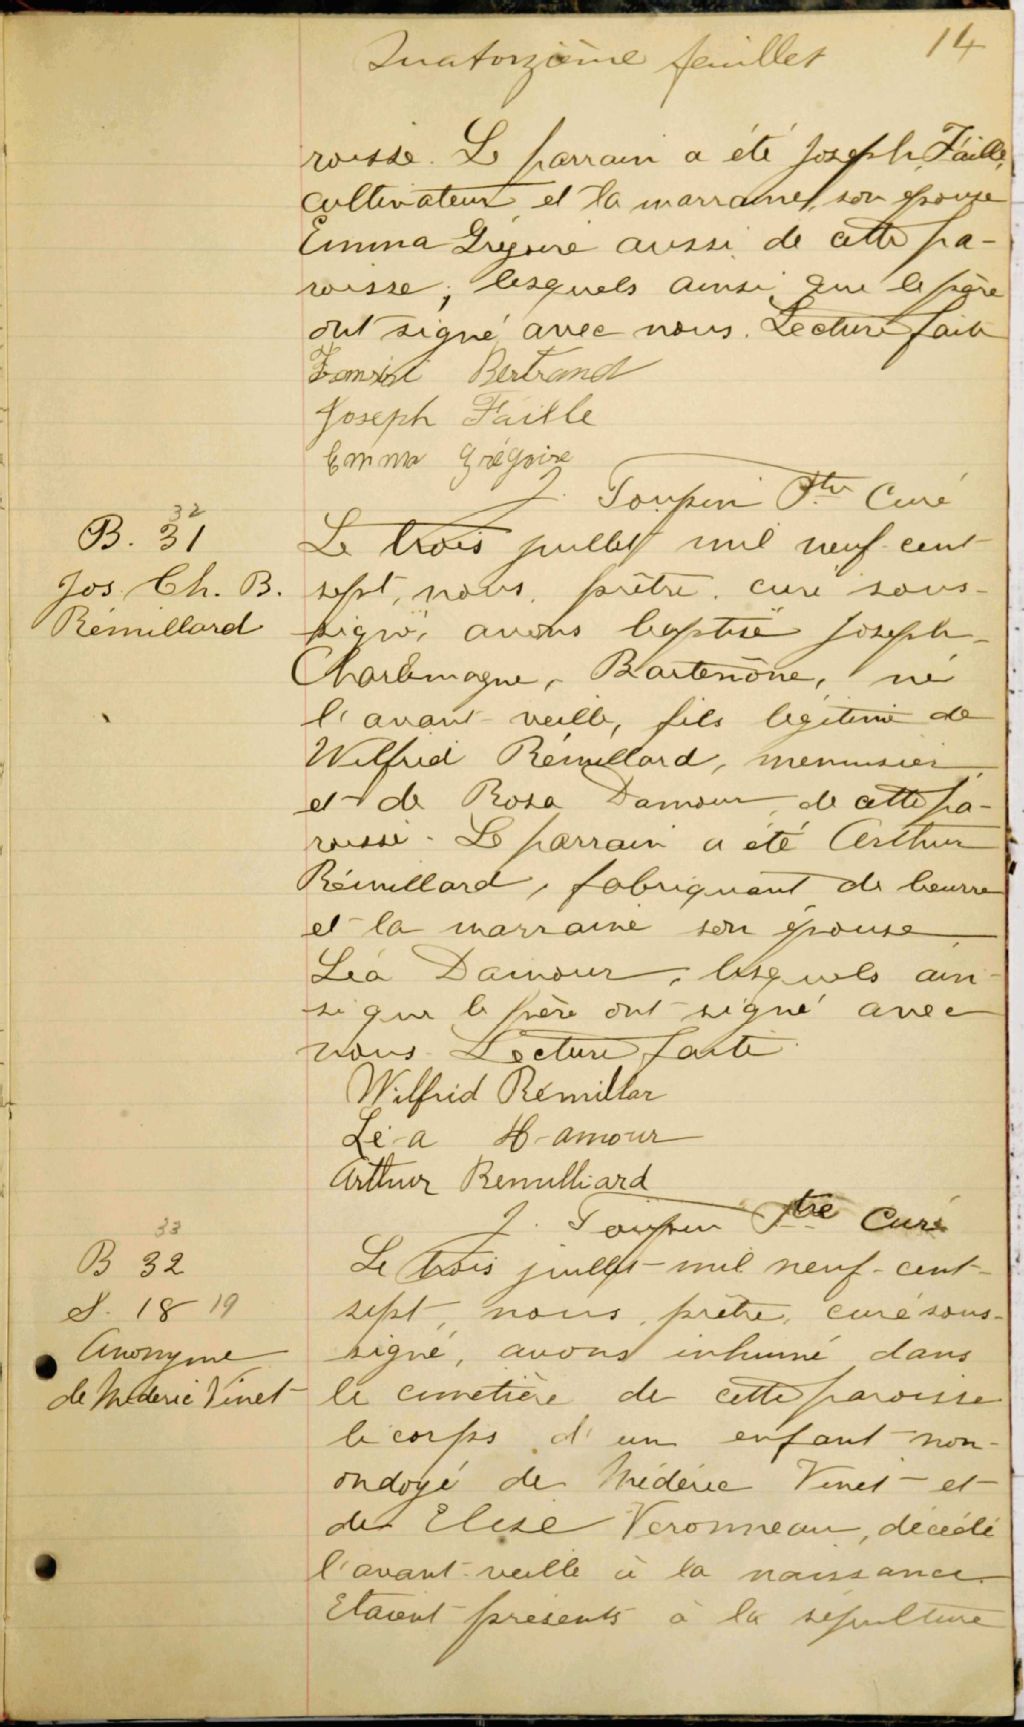 Quatorzième feuillet 14
roisse. Le parrain a été Joseph Faille,
cultivateur et la marraine, son épouse
Emma Grégoire aussi de cette pa-
roisse; lesquels ainsi que le père
ont signé avec nous. Lecture faite
Bertrand
Joseph Faille
Emma Grégoire
J. Toupin Ptre Curé
32
B. 31
Jos. Ch. B.
Rémillard
Le trois juillet mil neuf-cent
sept, nous, prêtre, curé sous-
signé, avons baptisé Joseph-
Charlemagne, né
l'avant-veille, fils légitime de
Wilfrid Rémillard, menuisier,
et de Rosa Damour, de cette pa-
roisse. Le parrain a été Arthur
Rémillard, fabriquant de beurre
et la marraine son épouse
Léa Damour, lesquels ain-
si que le père ont signé avec
nous. Lecture faite.
Wilfrid Rémillar
Lé-a D-amour
Arthur Remilliard
J. Toupin Ptre Curé
33
B 32
S. 18 19
Anonyme
de Médéric Vinet
Le trois juillet mil neuf-cent-
sept, nous, prêtre, curé sous-
signé, avons inhumé dans
le cimetière de cette paroisse
le corps d'un enfant non-
ondoyé de Médéric Vinet et
de Elise Veronneau, décédé
l'avant-veille à la naissance.
Etaient présents à la sépulture